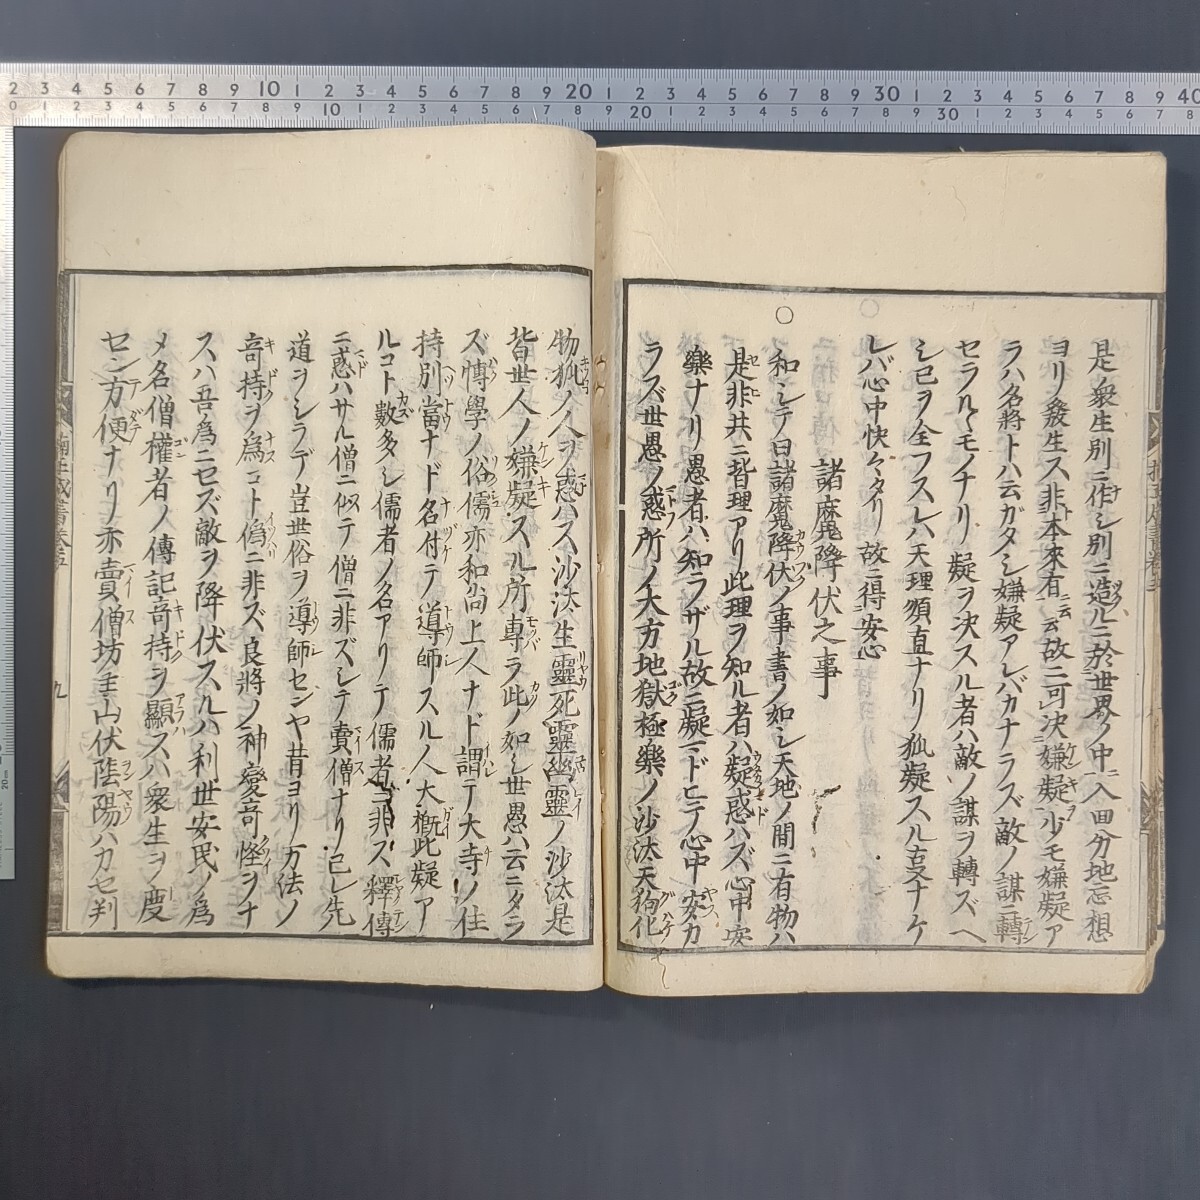 是衆生別ニ作シ別ニ造ル二於世界ノ中ニ入回分地忘想
ヨリ發生ス非本來有ニ云云故ニ可決嫌疑少モ嫌疑ア
ラハ名將トハ云ガタシ嫌疑アレバカナラズ敵ノ謀ニ轉
セラルヽモノナリ疑ヲ決スル者ハ敵ノ謀ヲ轉ズヘ
シ已ヲ全フスレハ天理順直ナリ狐疑スル支ナケ
レバ心中快々タリ故ニ得安心
諸魔降伏之事
○和シテ曰諸魔降伏ノ事書ノ如シ天地ノ間ニ有物ハ
是非共ニ皆理アリ此理ヲ知ル者ハ疑惑ハズ心中安
樂ナリ愚者ハ知ラザル故ニ疑マドヒテ心中安カ
ラズ世愚ノ惑所ノ大方地獄極樂ノ沙汰天狗化
物狐ノ人ヲ惑ハス沙汰生靈死靈幽靈ノ沙汰是
皆世人ノ嫌疑スル所專ラ此ノ如シ世愚ハ云ニタラ
ズ博學ノ俗儒亦和尚上人ナド謂テ大寺ノ住
持別當ナド名付テ導師スル人大概此疑ア
ルコト數多シ儒者ノ名アリテ儒者ニ非ス釋傳
ニ惑ハサル僧ニ似テ僧ニ非ズシテ賣僧ナリ己レ先
道ヲシラデ豈世俗ヲ導師センヤ昔ヨリ万法ノ
奇持ヲ爲コト僞ニ非ズ良將ノ神變奇怪ヲナ
スハ吾爲ニセズ敵ヲ降伏スルハ利世安民ノ爲
メ名僧權者ノ傳記奇持ヲ顯スハ衆生ヲ度
セン方便ナリ亦賣僧坊主山伏陰陽ハカセ判
九